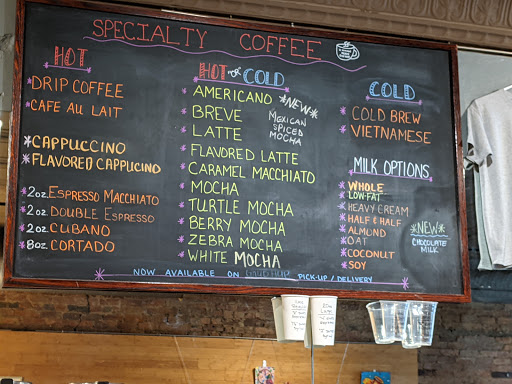 SPECIALTY COFFEE
HOT
DRIP COFFEE
CAFE AU LAIT
CAPPUCCINO
FLAVORED CAPPUCINO
2oz. ESPRESSO MACCHIATO
2oz. DOUBLE ESPRESSO
2oz. CUBANO
8oz. CORTADO
HOT OR COLD
AMERICANO
BREVE
LATTE
FLAVORED LATTE
CARAMEL MACCHIATO
MOCHA
TURTLE MOCHA
BERRY MOCHA
ZEBRA MOCHA
WHITE MOCHA
*NEW*
MEXICAN
SPICED
MOCHA
COLD
COLD BREW
VIETNAMESE
MILK OPTIONS
WHOLE
LOW-FAT
HEAVY CREAM
HALF & HALF
ALMOND
OAT
COCONUT
SOY
*NEW*
CHOCOLATE
MILK
NOW AVAILABLE ON GRUBHUB PICK-UP / DELIVERY